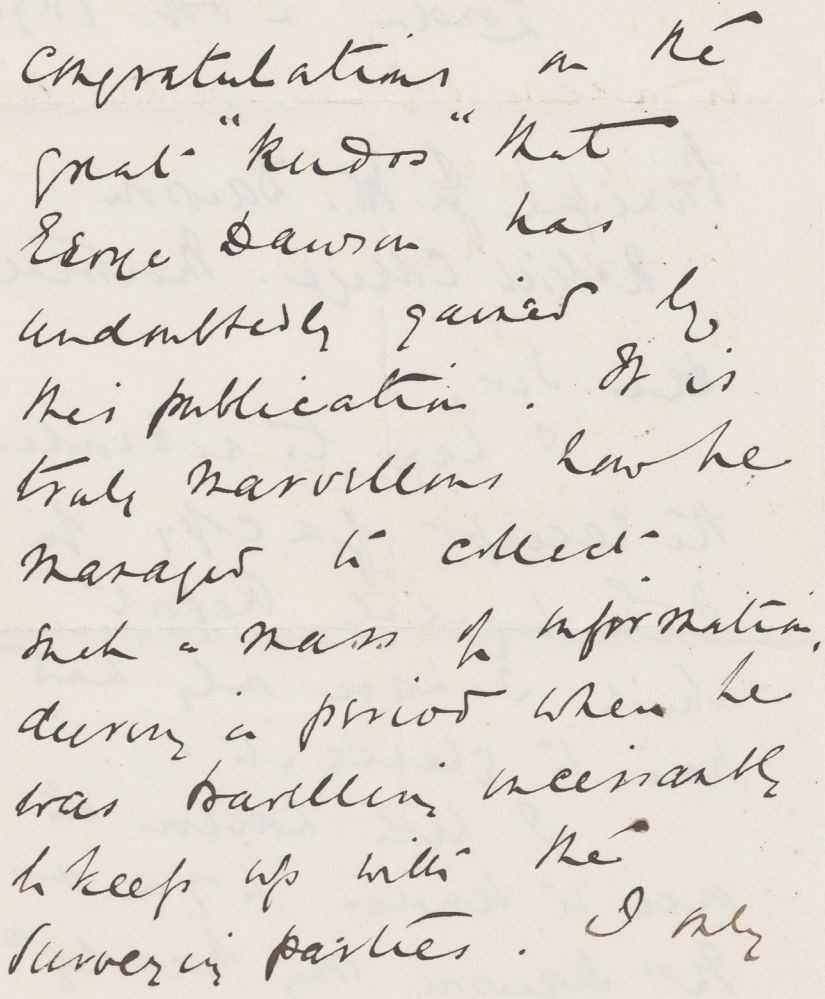 congratulations on the
great "Kudos" that
George Dawson has
undoubtedly gained by
this publication. It is
truly marvellous how he
managed to collect
such a mass of information,
during a period when he
was travelling incessantly
to keep up with the
surveying parties. I only